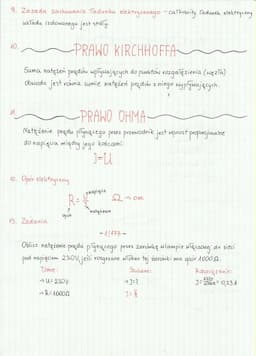 9. Zasada zachowania ładunku elektrycznego - całkowity ładunek elektryczny
układu izolowanego jest stały.
10.
PRAWO KIRCHHOFFA
Suma natężeń prądów wpływających do punktów rozgałęzienia (węzła)
obwodu jest równa sumie natężeń prądów z niego wypływających.
11.
PRAWO OHMA
Natężenie prądu płynącego przez przewodnik jest wprost proporcjonalne
do napięcia między jego końcami:
J=U
12. Opór elektryczny
R = U/J
napięcie
Ω → om
opór
natężenie
13. Zadania
~1/177~
Oblicz natężenie prądu płynącego przez żarówkę włączoną do sieci
pod napięciem 230V, jeśli rozgrzane włókno tej żarówki ma opór 1000Ω.
Dane: Szukane: Rozwiązanie:
→U=230V →J=?
→R=1000Ω